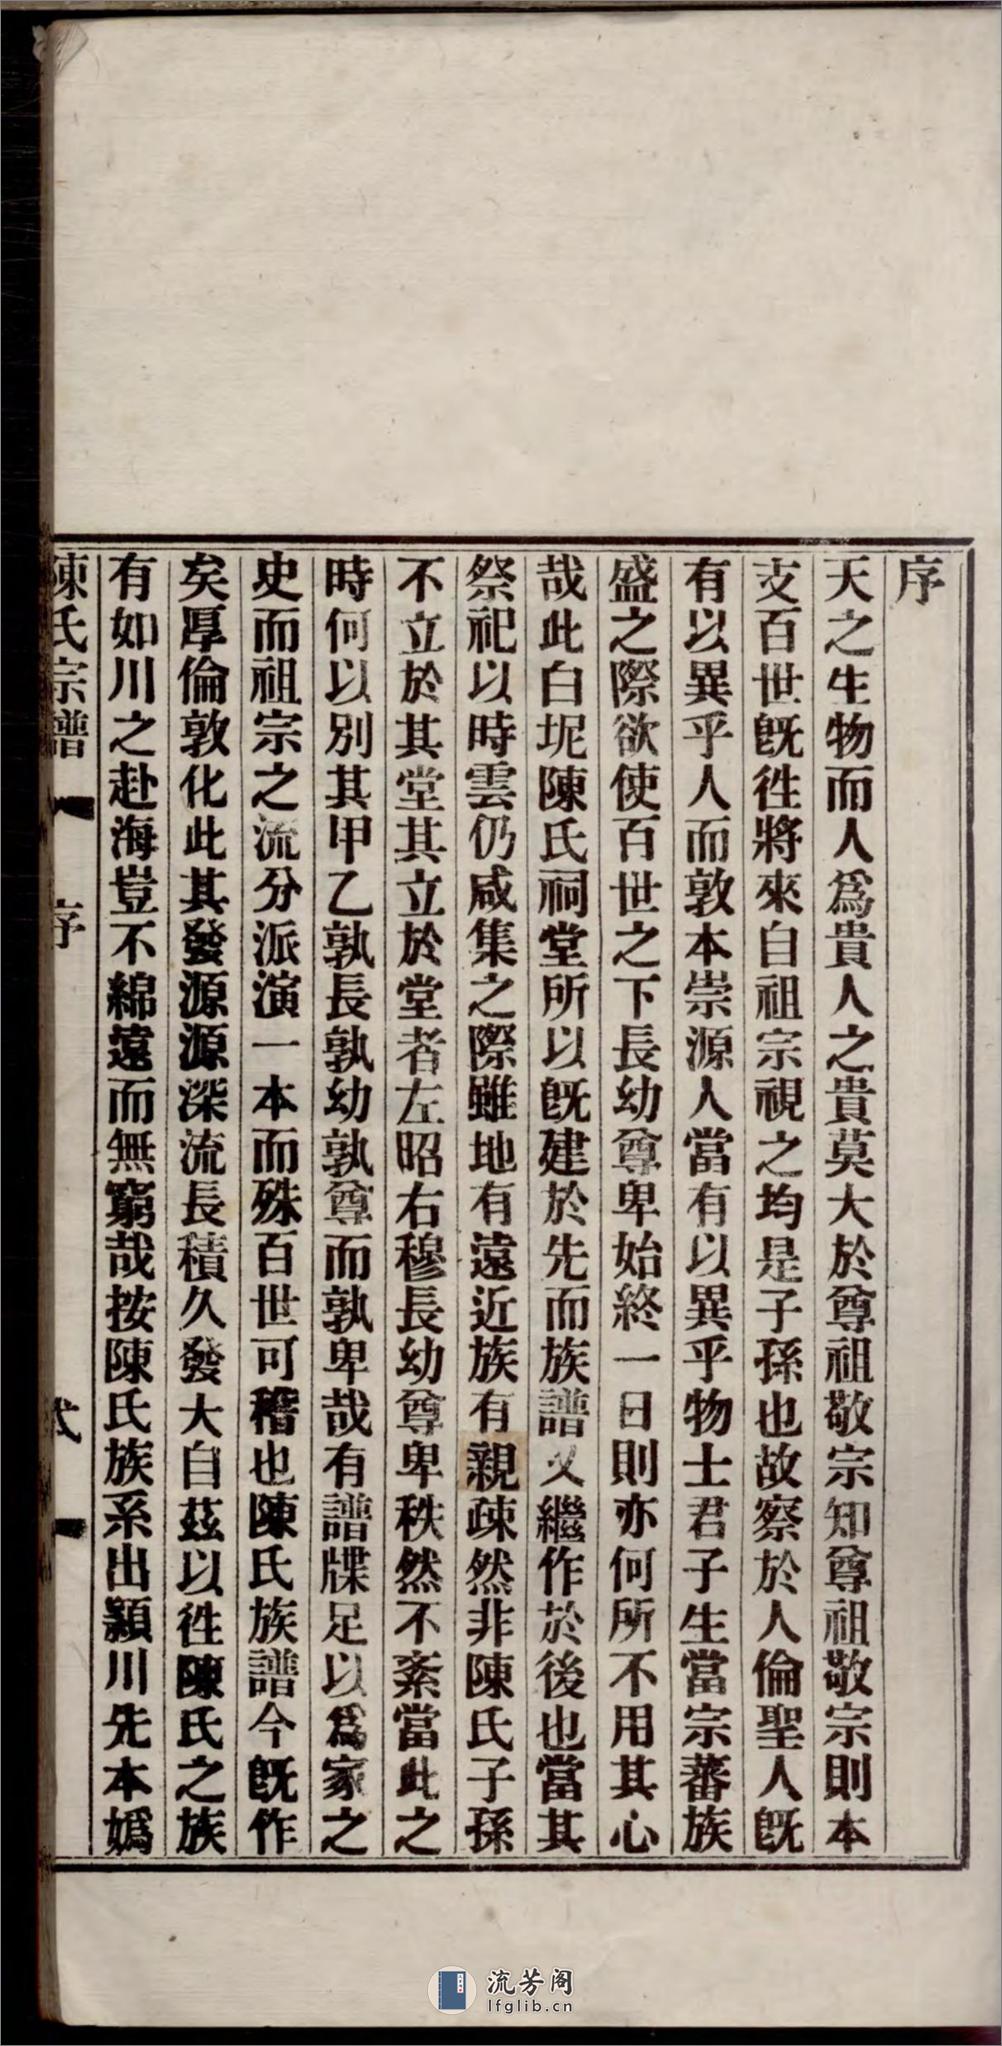 序
天之生物而人爲貴人之貴莫大於尊祖敬宗知尊祖敬宗則本
支百世旣徃將來自祖宗視之均是子孫也故察於人倫聖人旣
有以異乎人而敦本崇源人當有以異乎物士君子生當宗蕃族
盛之際欲使百世之下長幼尊卑始終一日則亦何所不用其心
哉此白坭陳氏祠堂所以旣建於先而族譜又繼作於後也當其
祭祀以時雲仍咸集之際雖地有遠近族有親疎然非陳氏子孫
不立於其堂其立於堂者左昭右穆長幼尊卑秩然不紊當此之
時何以別其甲乙孰長孰幼孰尊而孰卑哉有譜牒足以爲家之
史而祖宗之流分派演一本而殊百世可稽也陳氏族譜今旣作
矣厚倫敦化此其發源源深流長積久發大自茲以徃陳氏之族
有如川之赴海豈不綿遠而無窮哉按陳氏族系出潁川先本嬀
陳氏宗譜 序 弍
流芳阁
lfglib.cn